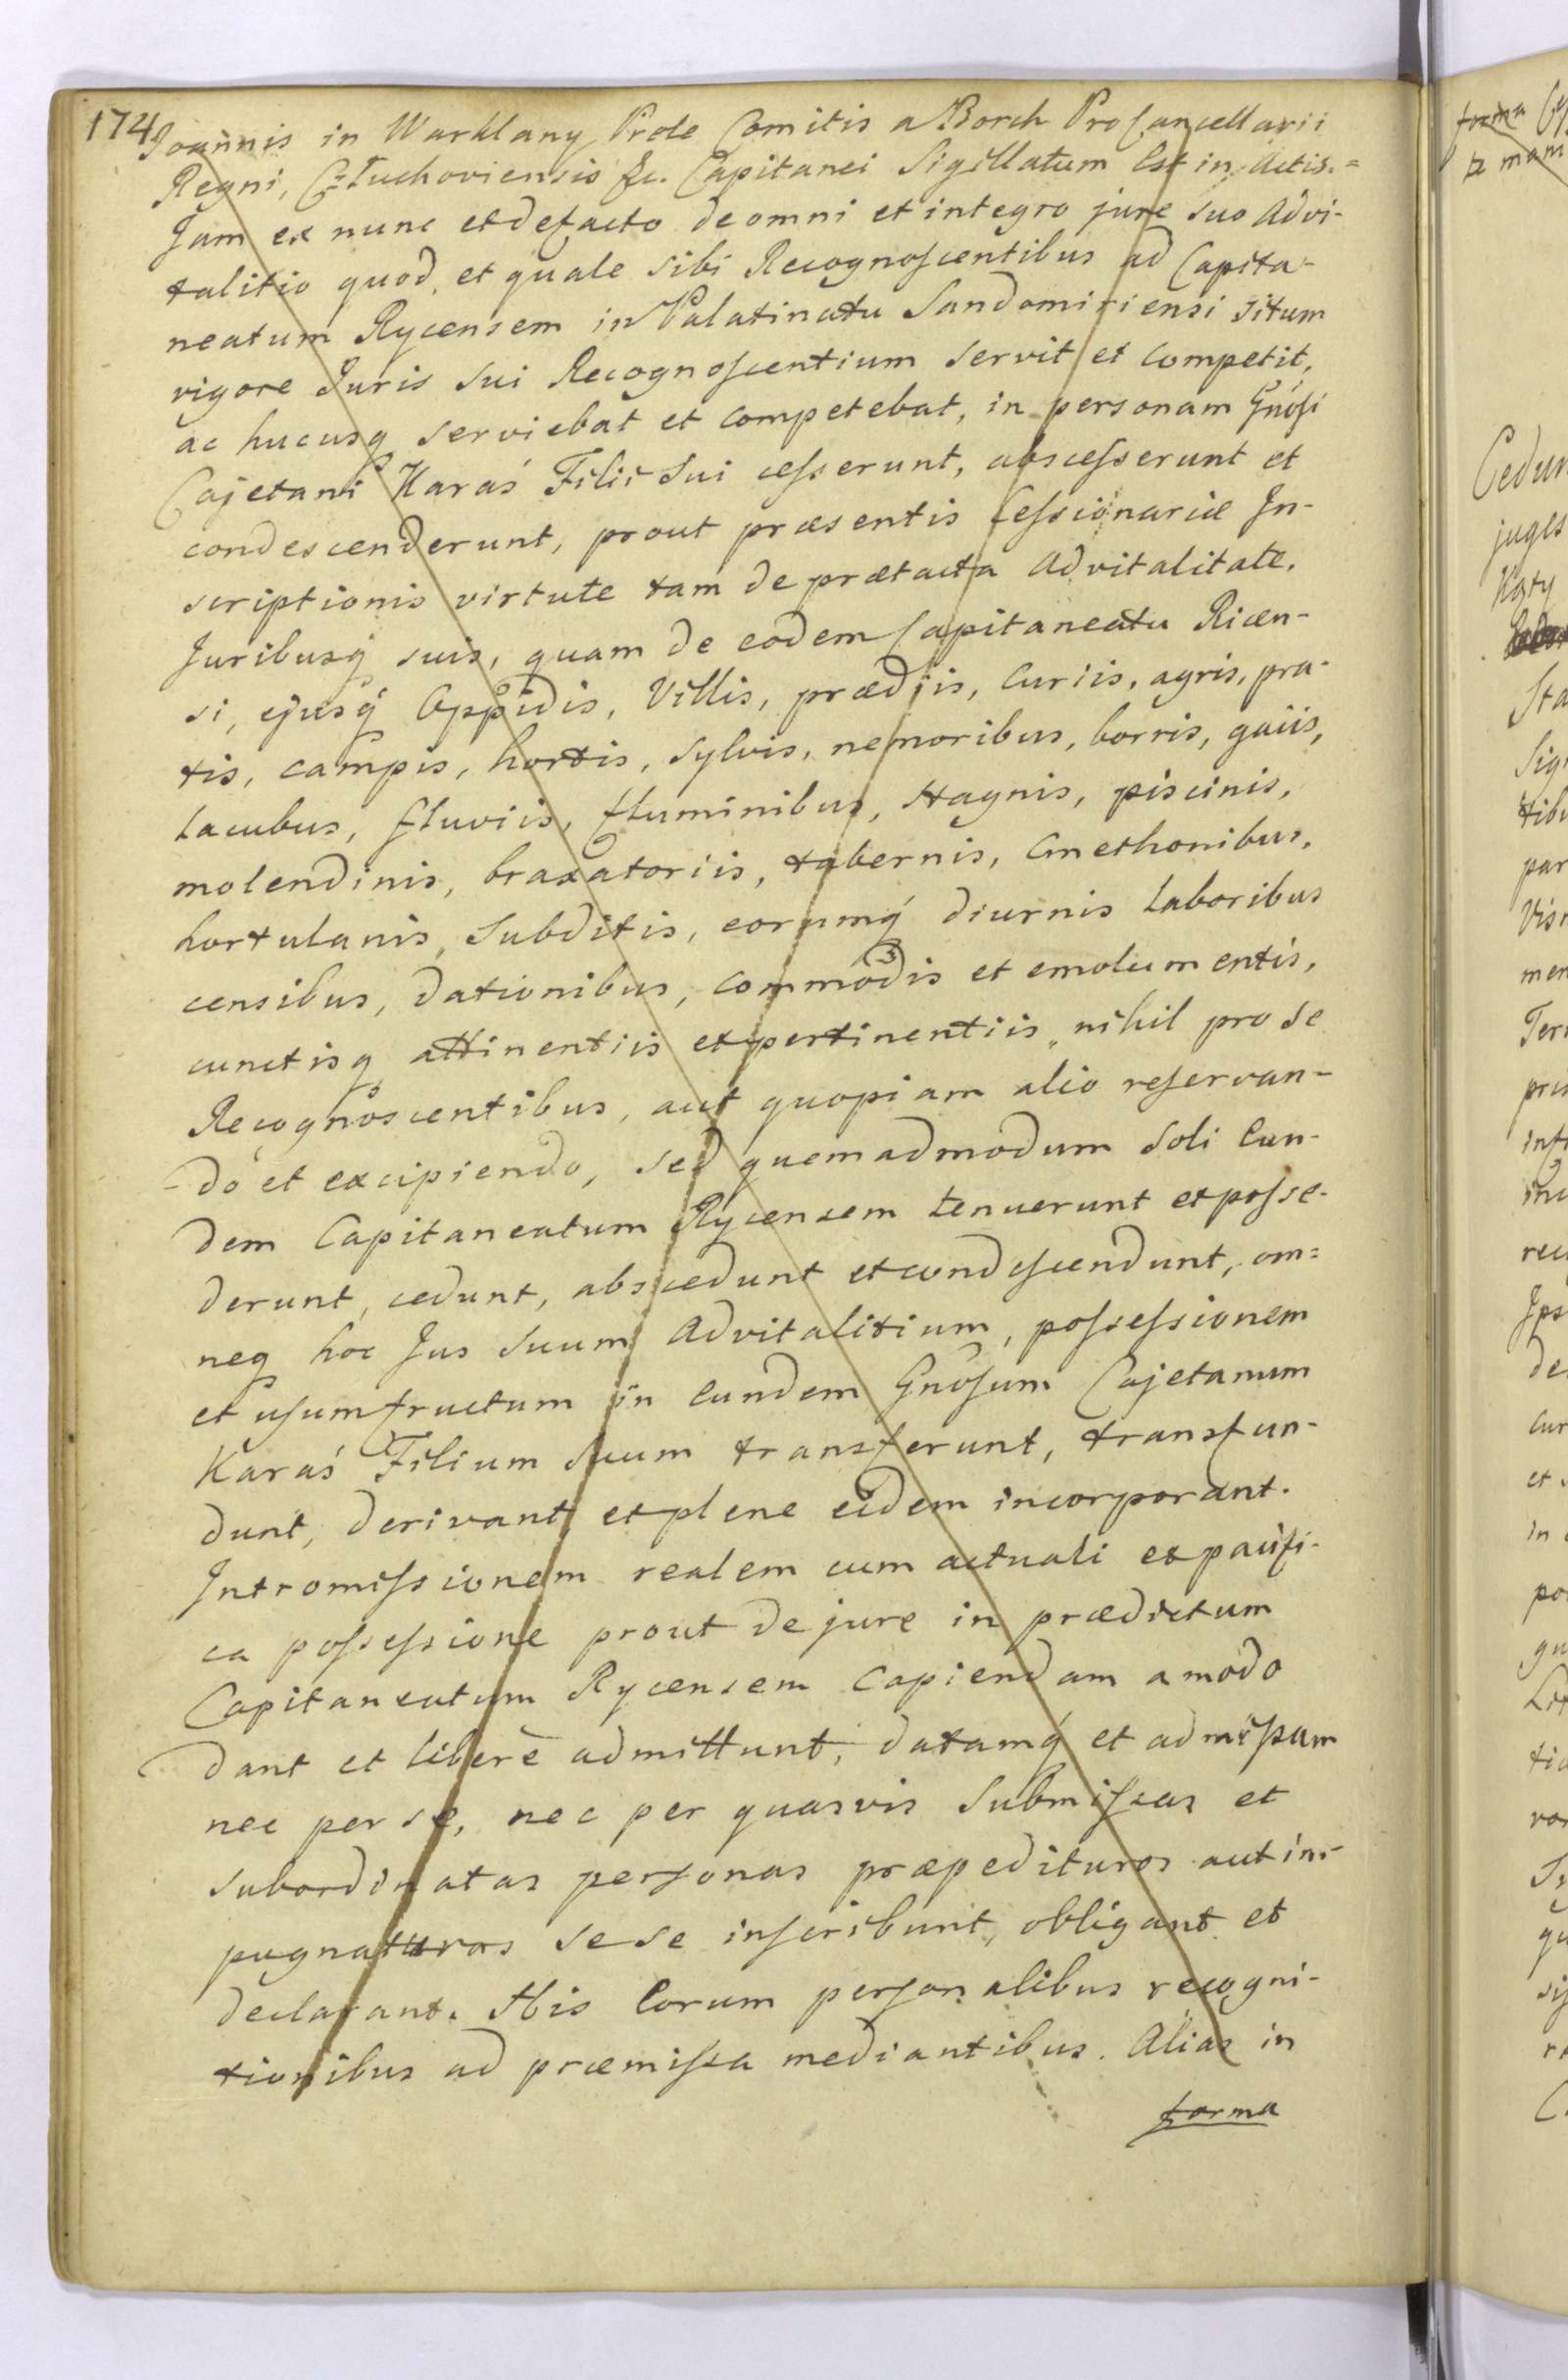 174
Joannis in Warklany Prole Comitis a Borch ProCancellarii
Regni, Człuchoviensis &c. Capitanei Sigillatum Est in Actis.=
Jam ex nunc et de facto de omni et integro jure suo Advi-
talitio quod, et quale sibi Recognoscentibus ad Capita-
neatum Rycensem in Palatinatu Sandomiriensi situm
vigore Juris sui Recognoscentium servit et competit,
ac hucusq serviebat et competebat, in personam Gnosi
Cajetani Karaś Filii Sui cesserunt, abscesserunt et
condescenderunt, prout præsentis Cessionariæ In-
scriptionis virtute tam de prætacta Advitalitate,
Juribusq suis, quam de eodem Capitaneatu Ricen-
si, ejusq Oppidis, Villis, prædjis, Curiis, agris, pra-
tis, campis, hortis, Sylvis, nemoribus, borris, gaiis,
Lacubus, fluviis, fluminibus, stagnis, piscinis,
molendinis, braxatoriis, tabernis, Cmethonibus,
hortulanis, Subditis, eorumq diurnis Laboribus
censibus, dationibus, commodis et emolumentis,
cunctisq attinentiis et pertinentiis, nihil pro se
Recognoscentibus, aut quopiam alio reservan-
do et excipiendo, sed quemadmodum Soli Eun-
dem Capitaneatum Rycensem tenuerunt et posse-
derunt, cedunt, abscedunt et condescendunt, om=
neq hoc Jus Suum Advitalitium, possessionem
et usumfructum in Eundem Gnosum Cajetanum
Karaś Filium Suum transferunt, transfun-
dunt, derivant et plene eidem incorporant.
Intromissionem realem cum actuali et pacifi-
ca possessione prout de jure in prædictum
Capitaneatum Rycensem Capiendam amodo
dant et liberè admittunt, datamq et admissam
nec per se, nec per quasvis Submissas et
subordinatas personas præpedituros aut im-
pugnaturos sese inscribunt, obligant et
declarant. His Eorum personalibus recogni-
tionibus ad præmissa mediantibus. Alias in
forma